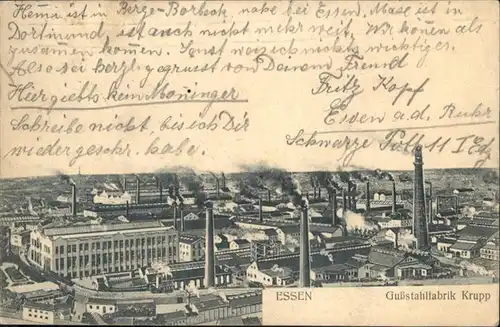 Hema ist in Berge-Borbeck, nahe bei Essen. Mase ist in
Dortmund, ist auch nicht mehr weit. Wir können als
zusammen kommen. Sonst weiss ich nichts wichtiger.
Also sei herzl. gegrüsst von Deinem Freund
Hier giebts kein Moninger
Fritz Kopf
Essen a. d. Ruhr
Schreibe nicht, bis ich Dir
wieder geschr. habe.
Schwarze 11 I Etg.
ESSEN Gußstahlfabrik Krupp